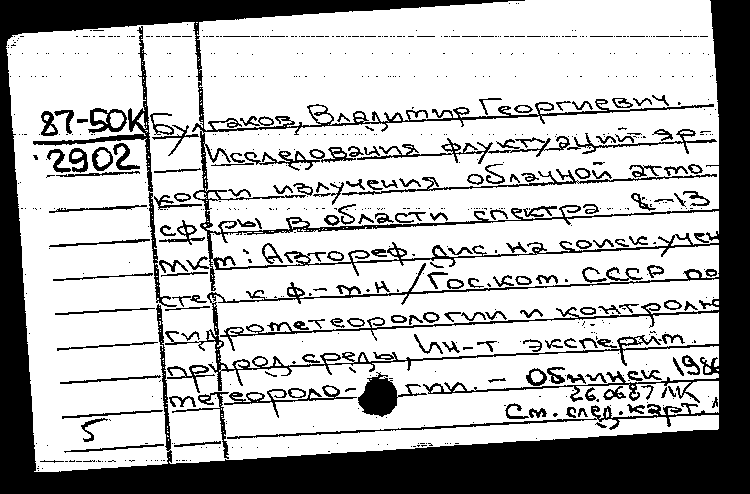 87-50К
2902
Булгаков, Владимир Георгиевич.
Исследования флуктуаций яр-
кости излучения облачной атмо-
сферы в области спектра 8-13
мкм: Автореф. дис. на соиск. учен
степ. к. ф.-м.н. / Гос. ком. СССР по
гидрометеорологии и контролю
природ. среды, Ин-т эксперим.
метеороло- гии. - Обнинск, 1986
26.0687 ЛК
См. след. карт.
5